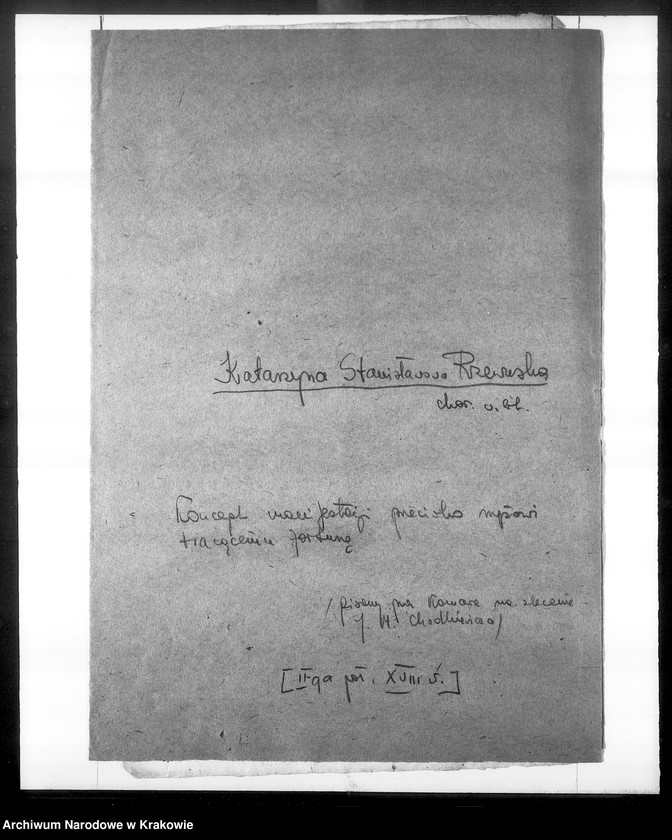 Katarzyna Stanisławowa Rzewuska
chor. w. lit.
Koncept manifestacji przeciwko mężowi
tracącemu fortunę
/pisany przez Komara na zlecenie
J. M. Chodkiewicza/
[II-ga poł. XVIII w.]
Archiwum Narodowe w Krakowie